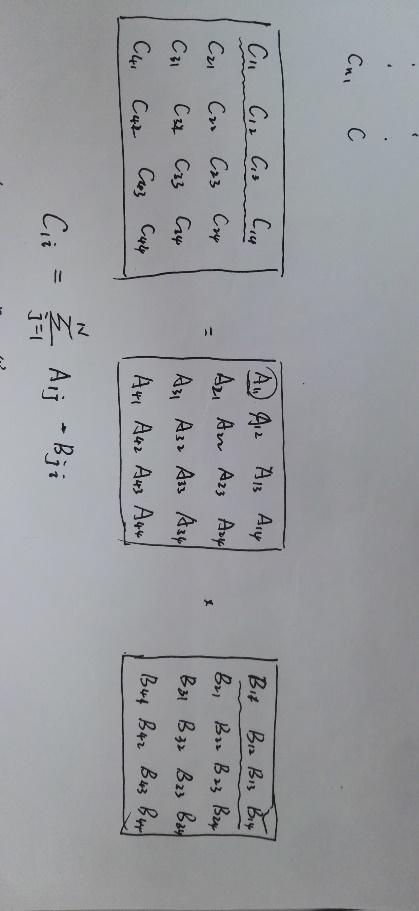 C_{n1} C
C_{11} C_{12} C_{13} C_{14}
C_{21} C_{22} C_{23} C_{24}
C_{31} C_{32} C_{33} C_{34}
C_{41} C_{42} C_{43} C_{44}
=
A_{11} A_{12} A_{13} A_{14}
A_{21} A_{22} A_{23} A_{24}
A_{31} A_{32} A_{33} A_{34}
A_{41} A_{42} A_{43} A_{44}
×
B_{11} B_{12} B_{13} B_{14}
B_{21} B_{22} B_{23} B_{24}
B_{31} B_{32} B_{23} B_{34}
B_{41} B_{42} B_{43} B_{44}
C_{1i} = \sum_{j=1}^{N} A_{1j} · B_{ji}